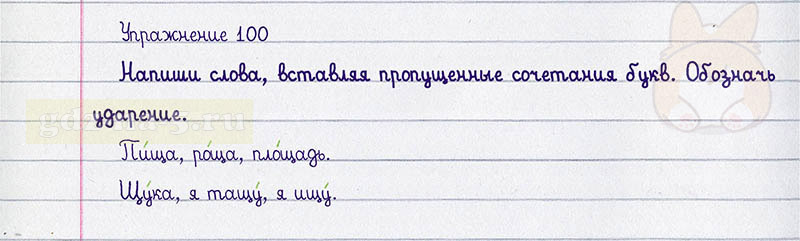 Упражнение 100
Напиши слова, вставляя пропущенные сочетания букв. Обозначь
ударение.
Пи́ща, ро́ща, пло́щадь.
Щу́ка, я тащу́, я ищу́.